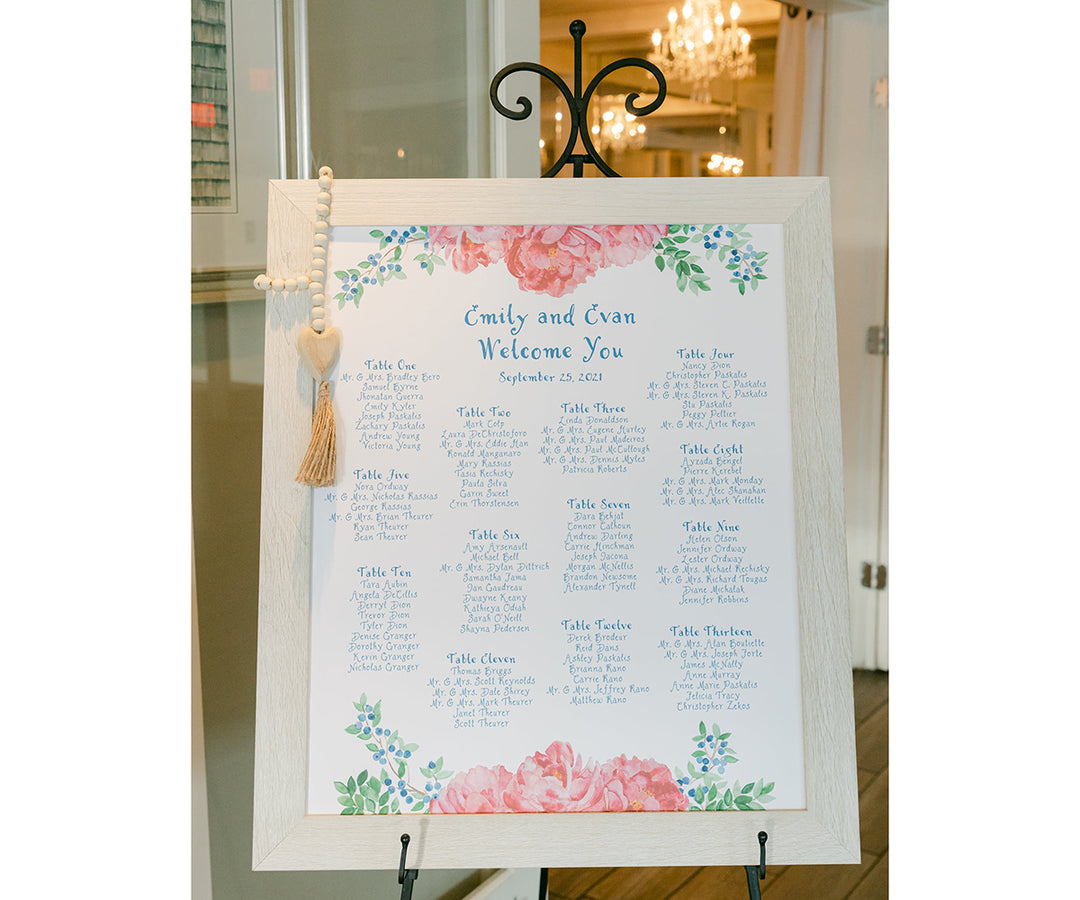 Emily and Evan
Welcome You
September 25, 2021
Table One
Mr. & Mrs. Bradley Bero
Samuel Byrne
Jhonatan Guerra
Emily Kyler
Joseph Paskalis
Zachary Paskalis
Andrew Young
Victoria Young
Table Two
Mark Colp
Laura DeChristoforo
Mr. & Mrs. Eddie Han
Ronald Manganaro
Mary Kassias
Tasia Rechisky
Paula Silva
Garin Sweet
Erin Thorstensen
Table Three
Linda Donaldson
Mr. & Mrs. Eugene Hurley
Mr. & Mrs. Paul Madeiros
Mr. & Mrs. Paul McCullough
Mr. & Mrs. Dennis Myles
Patricia Roberts
Table Four
Nancy Dion
Christopher Paskalis
Mr. & Mrs. Steven C. Paskalis
Mr. & Mrs. Steven K. Paskalis
Stu Paskalis
Peggy Peltier
Mr. & Mrs. Artie Rogan
Table Five
Nora Ordway
Mr. & Mrs. Nicholas Kassias
George Kassias
Mr. & Mrs. Brian Theurer
Ryan Theurer
Sean Theurer
Table Six
Amy Arsenault
Michael Bell
Mr. & Mrs. Dylan Dittrich
Samantha Jama
Jan Gaudreau
Dwayne Keany
Kathleya Odiah
Sarah O'Neill
Shayna Pedersen
Table Seven
Dara Behjat
Connor Calhoun
Andrew Darling
Carrie Hinchman
Joseph Jacona
Morgan McNellis
Brandon Newsome
Alexander Tynell
Table Eight
Ayzada Bengel
Pierre Kerebel
Mr. & Mrs. Mark Monday
Mr. & Mrs. Alec Shanahan
Mr. & Mrs. Mark Veillette
Table Nine
Helen Olson
Jennifer Ordway
Lester Ordway
Mr. & Mrs. Michael Rechisky
Mr. & Mrs. Richard Tougas
Diane Michalak
Jennifer Robbins
Table Ten
Tara Aubin
Angela DeCillis
Derryl Dion
Trevor Dion
Tyler Dion
Denise Granger
Dorothy Granger
Kevin Granger
Nicholas Granger
Table Eleven
Thomas Briggs
Mr. & Mrs. Scott Reynolds
Mr. & Mrs. Dale Shirey
Mr. & Mrs. Mark Theurer
Janet Theurer
Scott Theurer
Table Twelve
Derek Brodeur
Reid Dans
Ashley Paskalis
Brianna Rano
Carrie Rano
Mr. & Mrs. Jeffrey Rano
Matthew Rano
Table Thirteen
Mr. & Mrs. Alan Bouliette
Mr. & Mrs. Joseph Forte
James McNalty
Anne Murray
Anne Marie Paskalis
Felicia Tracy
Christopher Zekos